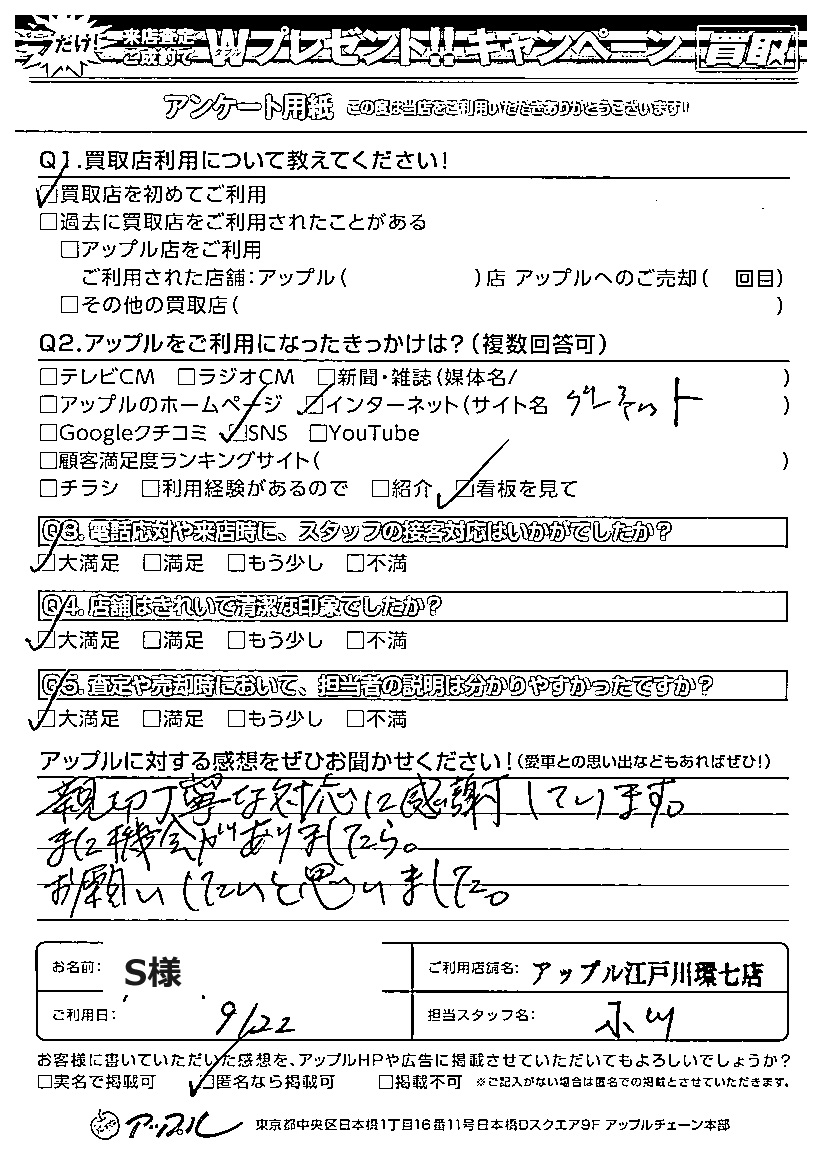 だけ! 来店査定ご成約で Wプレゼント!! キャンペーン 買取
アンケート用紙 この度は当店をご利用いただきありがとうございます!!
Q1.買取店利用について教えてください!
☑買取店を初めてご利用
□過去に買取店をご利用されたことがある
□アップル店をご利用
ご利用された店舗:アップル( )店 アップルへのご売却( 回目)
□その他の買取店( )
Q2.アップルをご利用になったきっかけは?(複数回答可)
□テレビCM □ラジオCM □新聞・雑誌(媒体名/ )
□アップルのホームページ ☑インターネット(サイト名 )
□Googleクチコミ ☑SNS □YouTube
□顧客満足度ランキングサイト( )
□チラシ □利用経験があるので □紹介 ☑看板を見て
Q3. 電話応対や来店時に、スタッフの接客対応はいかがでしたか?
☑大満足 □満足 □もう少し □不満
Q4. 店舗はきれいで清潔な印象でしたか?
☑大満足 □満足 □もう少し □不満
Q5. 査定や売却時において、担当者の説明は分かりやすかったですか?
☑大満足 □満足 □もう少し □不満
アップルに対する感想をぜひお聞かせください!(愛車との思い出などもあればぜひ!)
親切丁寧な対応に感謝しています。
また機会がありましたら。
お願いしたいと思いました。
お名前: S様 ご利用店舗名: アップル江戸川環七店
ご利用日: 9/22 担当スタッフ名: 小川
お客様に書いていただいた感想を、アップルHPや広告に掲載させていただいてもよろしいでしょうか?
□実名で掲載可 ☑匿名なら掲載可 □掲載不可 ※ご記入がない場合は匿名での掲載とさせていただきます。
アップル 東京都中央区日本橋1丁目16番11号日本橋Dスクエア9F アップルチェーン本部